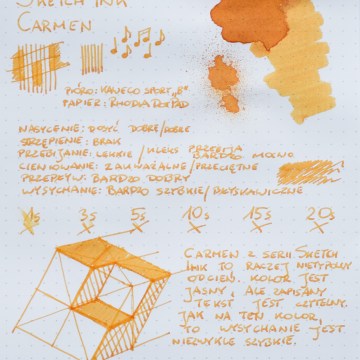 SKETCH INK
CARMEN
PIÓRO: KAWECO SPORT „B"
PAPIER: RHODIA DOTPAD
NASYCENIE: DOŚYĆ DOBRE/DOBRE
STRZĘPIENIE: BRAK
PRZEBIJANIE: LEKKIE / ULEKS PRZEBIJA BARDZO MOCNO
CIENIOWANIE: ZAUWAŻALNE/PRZECIĘTNE
PRZEPŁYW: BARDZO DOBRY
WYSYCHANIE: BARDZO SZYBKIE/BŁYSKAWICZNE
1s 3s 5s 10s 15s 20s
CARMEN Z SERII SKETCH
INK TO RACZEJ NIETYPOWY
ODCIEŃ. KOLOR JEST
JASNY, ALE ZAPISANY
TEKST JEST CZYTELNY.
JAK NA TEN KOLOR,
TO WYSYCHANIE JEST
NIEZWYKLE SZYBKIE.